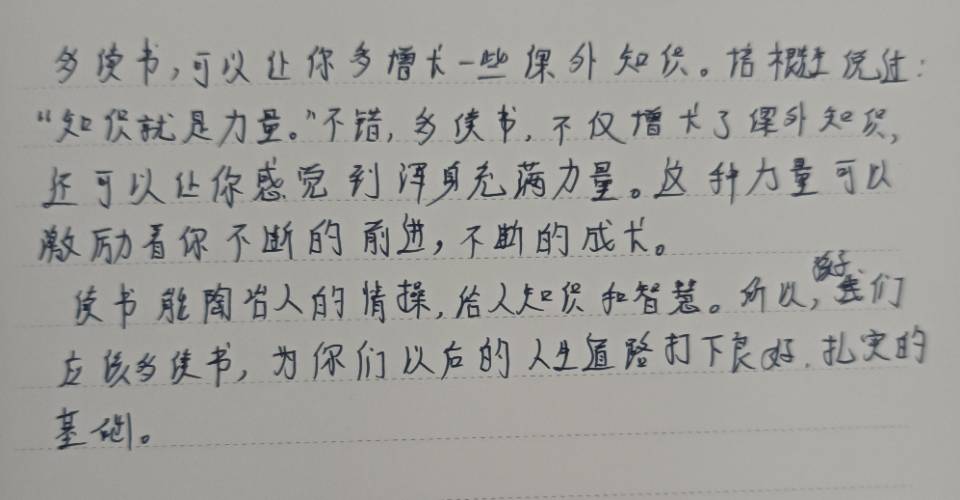 多读书，可以让你多增长一些课外知识。培根先生说过：
“知识就是力量。”不错，多读书，不仅增长了课外知识，
还可以让你感觉到浑身充满力量。这种力量可以
激励着你不断的前进，不断的成长。
读书能陶冶人的情操，给人知识和智慧。所以，孩子们
应该多读书，为你们以后的人生道路打下良好、扎实的
基础。